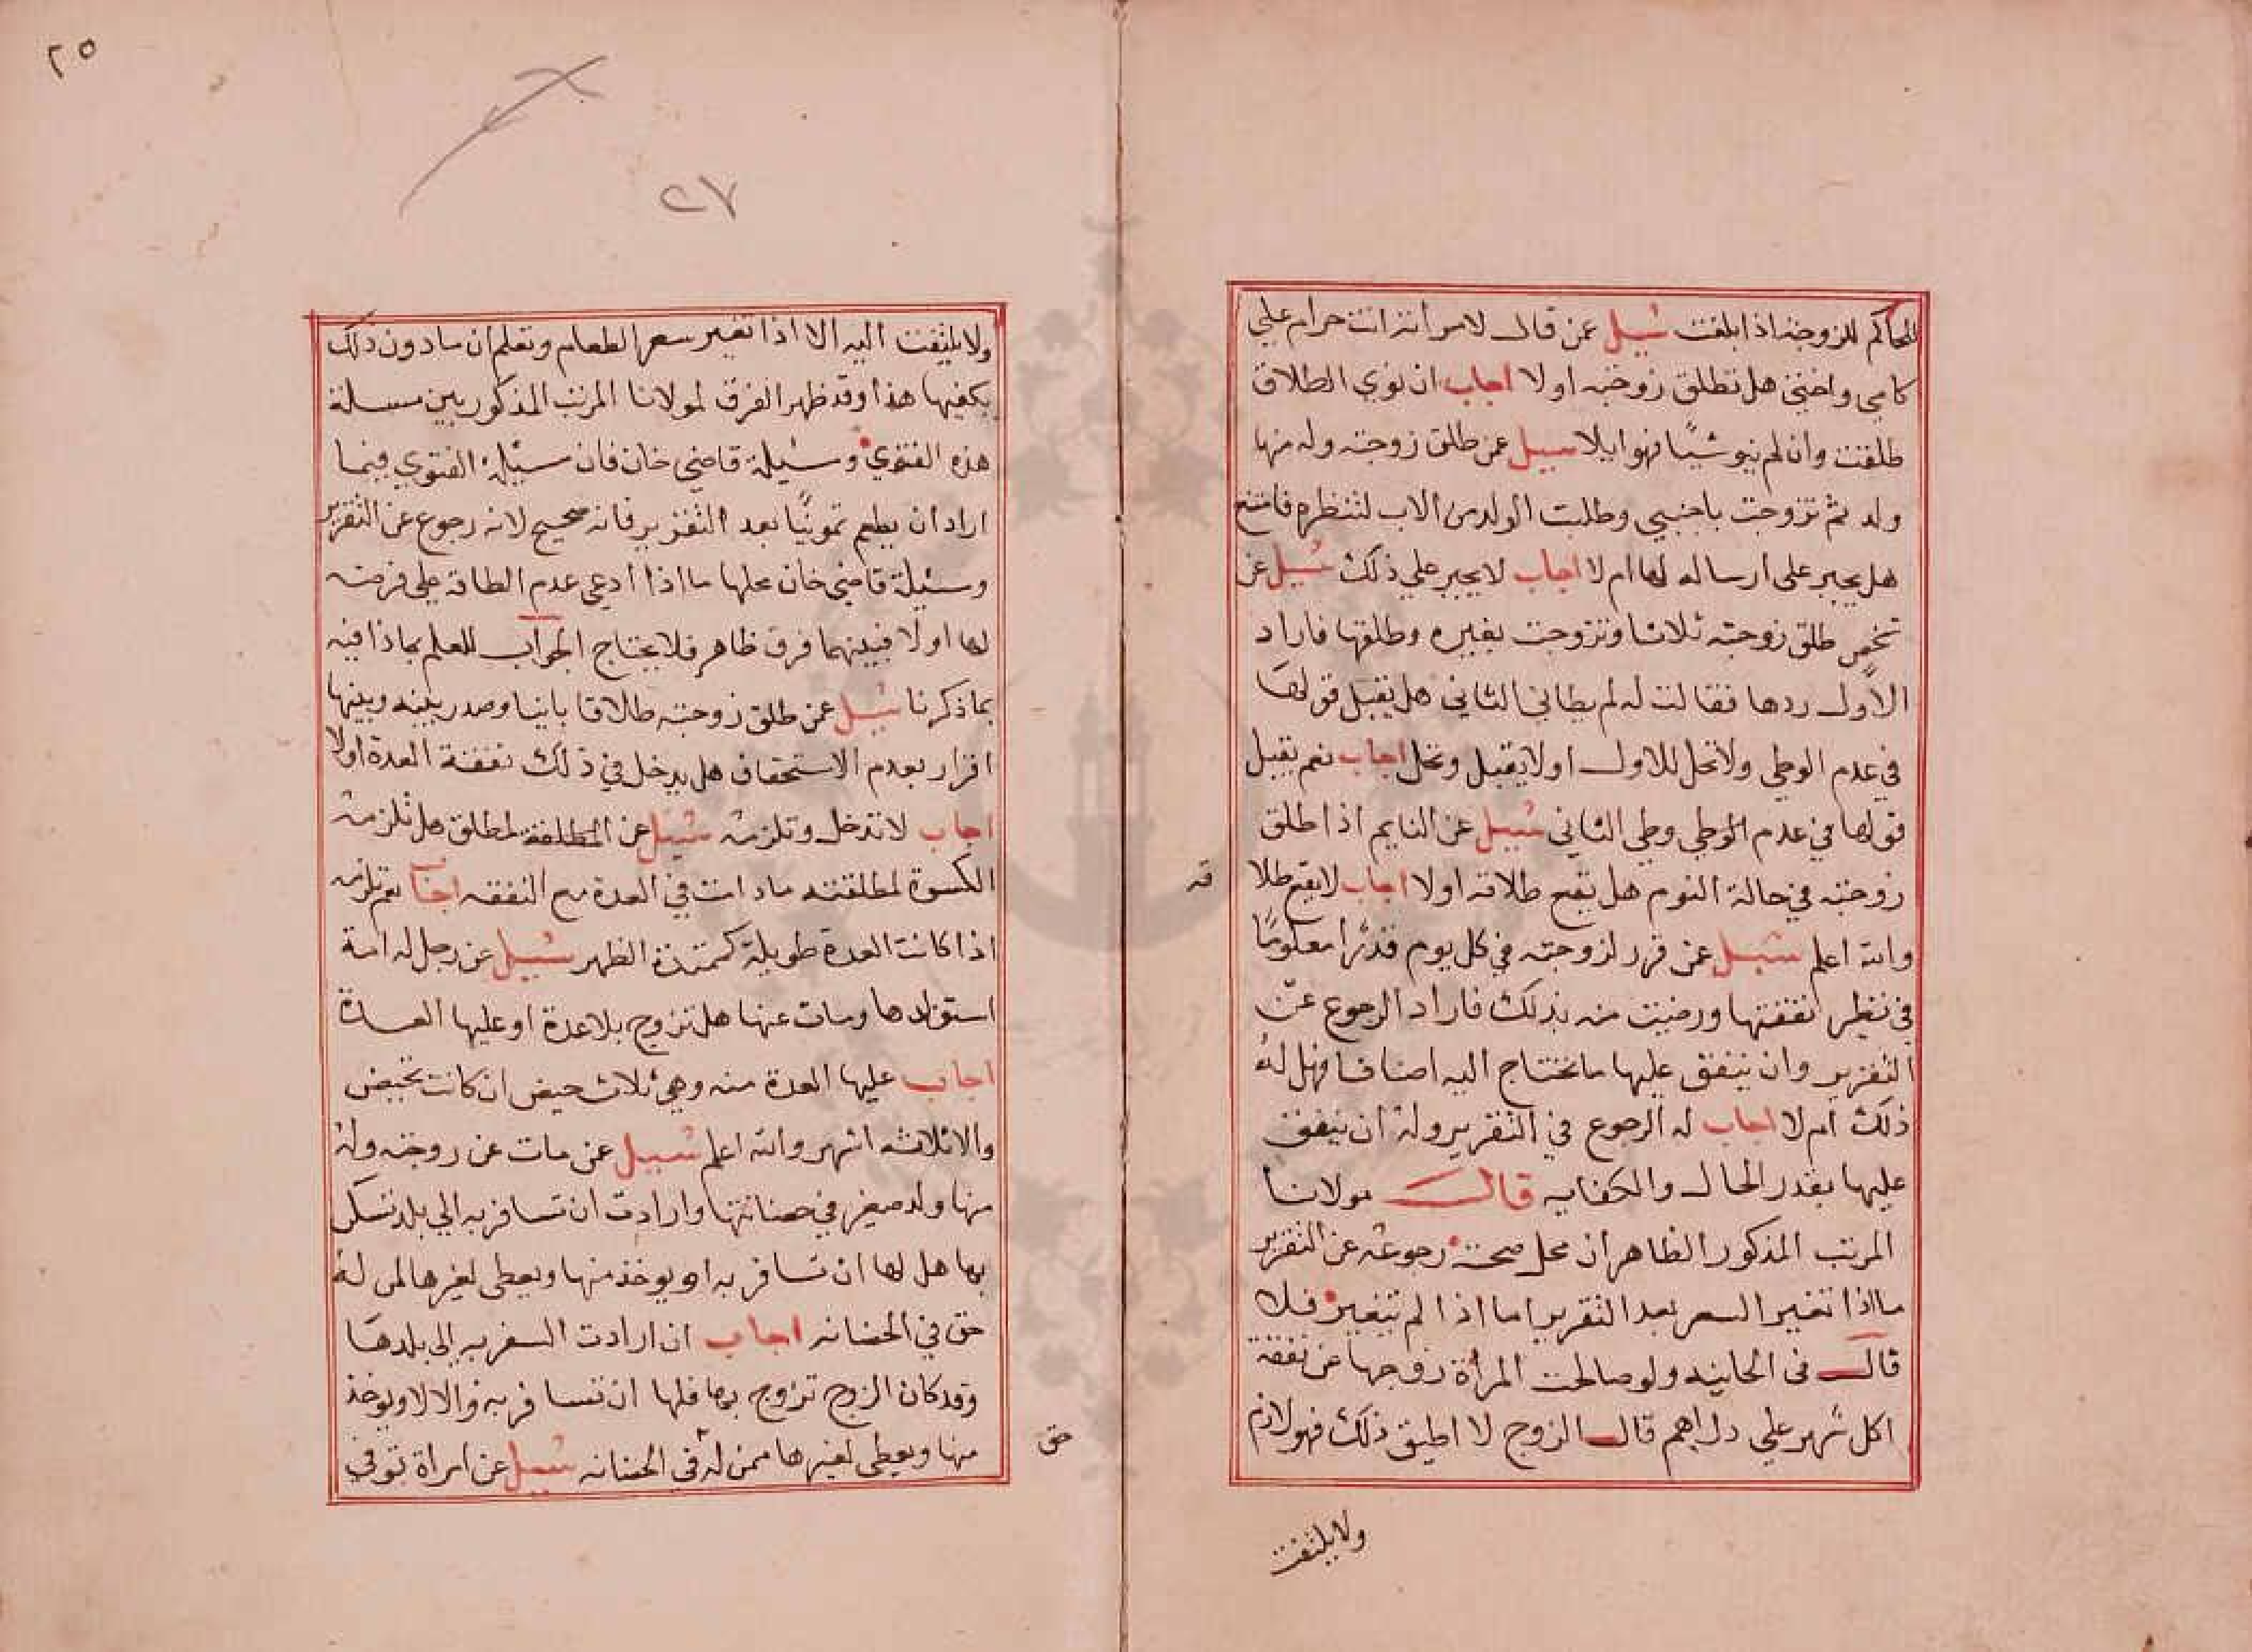 الحاكم للزوجة اذا بلغت سُيل عمن قال لامراته انت حرام علي
كامي واختي هل تطلق زوجته اولا اجاب ان نوي الطلاق
طلقت وان لم ينو شيًا فهو ايلا سيل عمن طلق زوجته وله منها
ولد ثم تزوجت باجنبي وطلبت الولد من الاب لتنظره فامتنع
هل يجبر على ارساله لها ام لا اجاب لا يجبر علي ذلك سُيل عن
شخص طلق زوجته ثلاثا وتزوجت بغيره وطلقها فاراد
الاول ردها فقالت له لم يطاني الثاني هل يقبل قولها
في عدم الوطي ولا تحل للاول اولا يقبل وتحل اجاب نعم يقبل
قولها في عدم الوطي وطي الثاني سُيل عن النايم اذا طلق
زوجته في حالة النوم هل يقع طلاقه اولا اجاب لا يقع طلا
قه
والله اعلم سُيل عمن قرر لزوجته في كل يوم قدرًا معلومًا
في نظير نفقتها ورضيت منه بذلك فاراد الرجوع عن
التقرير وان ينفق عليها ما تحتاج اليه اصنافا فهل له
ذلك ام لا اجاب له الرجوع في التقرير وله ان ينفق
عليها بقدر الحال والكفايه قال مولانا
المرتب المذكور الظاهر ان محل صحة رجوعه عن التقرير
ما اذا تغير السعر بعد التقرير اما اذا لم يتغير فلا
قال في الخانيه ولو صالحت المرأة زوجها عن نفقة
اكل شهر علي دراهم قال الزوج لا اطيق ذلك فهو لازم
ولا يلتفت
٢٥
٢٧
ولا يلتفت اليه الا اذا تغير سعر الطعام وتعلم ان ما دون ذلك
يكفيها هذا وقد ظهر الفرق لمولانا المرتب المذكور بين مسيلة
هذه الفتوي وسئيلة قاضي خان فان سئيلة الفتوي فيما
اراد ان يطعم تموينًا بعد التقرير فانه صحيح لانه رجوع عن التقرير
وسئيلة قاضي خان محلها ما اذا ادعي عدم الطاقة علي فرضه
لها اولا فبينهما فرق ظاهر فلا يحتاج الجواب للعلم بماذا فيه
بما ذكرنا سُيل عمن طلق زوجته طالاقا باينا وصدر بينه وبينها
اقرار بعدم الاستحقاق هل يدخل في ذلك نفقة العدة اولا
اجاب لا تدخل وتلزمه سُيل عن المطلقة لمطلق هل تلزمه
الكسوة لمطلقته مادامت في العدة مع النفقه اجاب نعم تلزمه
اذا كانت العدة طويلة كممتدة الطهر سُيل عن رجل له امة
استولدها ومات عنها هل تزوج بلا عدة او عليها العدة
اجاب عليها العدة منه وهي ثلاث حيض ان كانت تحيض
والا ثلاثه اشهر والله اعلم سُيل عن مات عن زوجته وله
منها ولد صغير في حضانتها وارادت ان تسافر به الي بلد تسكن
بها هل لها ان تسافر به او يوخذ منها ويعطى لغيرها لمن له
حق في الحضانه اجاب ان ارادت السفر به الي بلدها
وقد كان الزوج تزوج بها فلها ان تسافر به والا لا ويوخذ
منها ويعطى لغيرها ممن له في الحضانه سُيل عن امراة توفي
حق